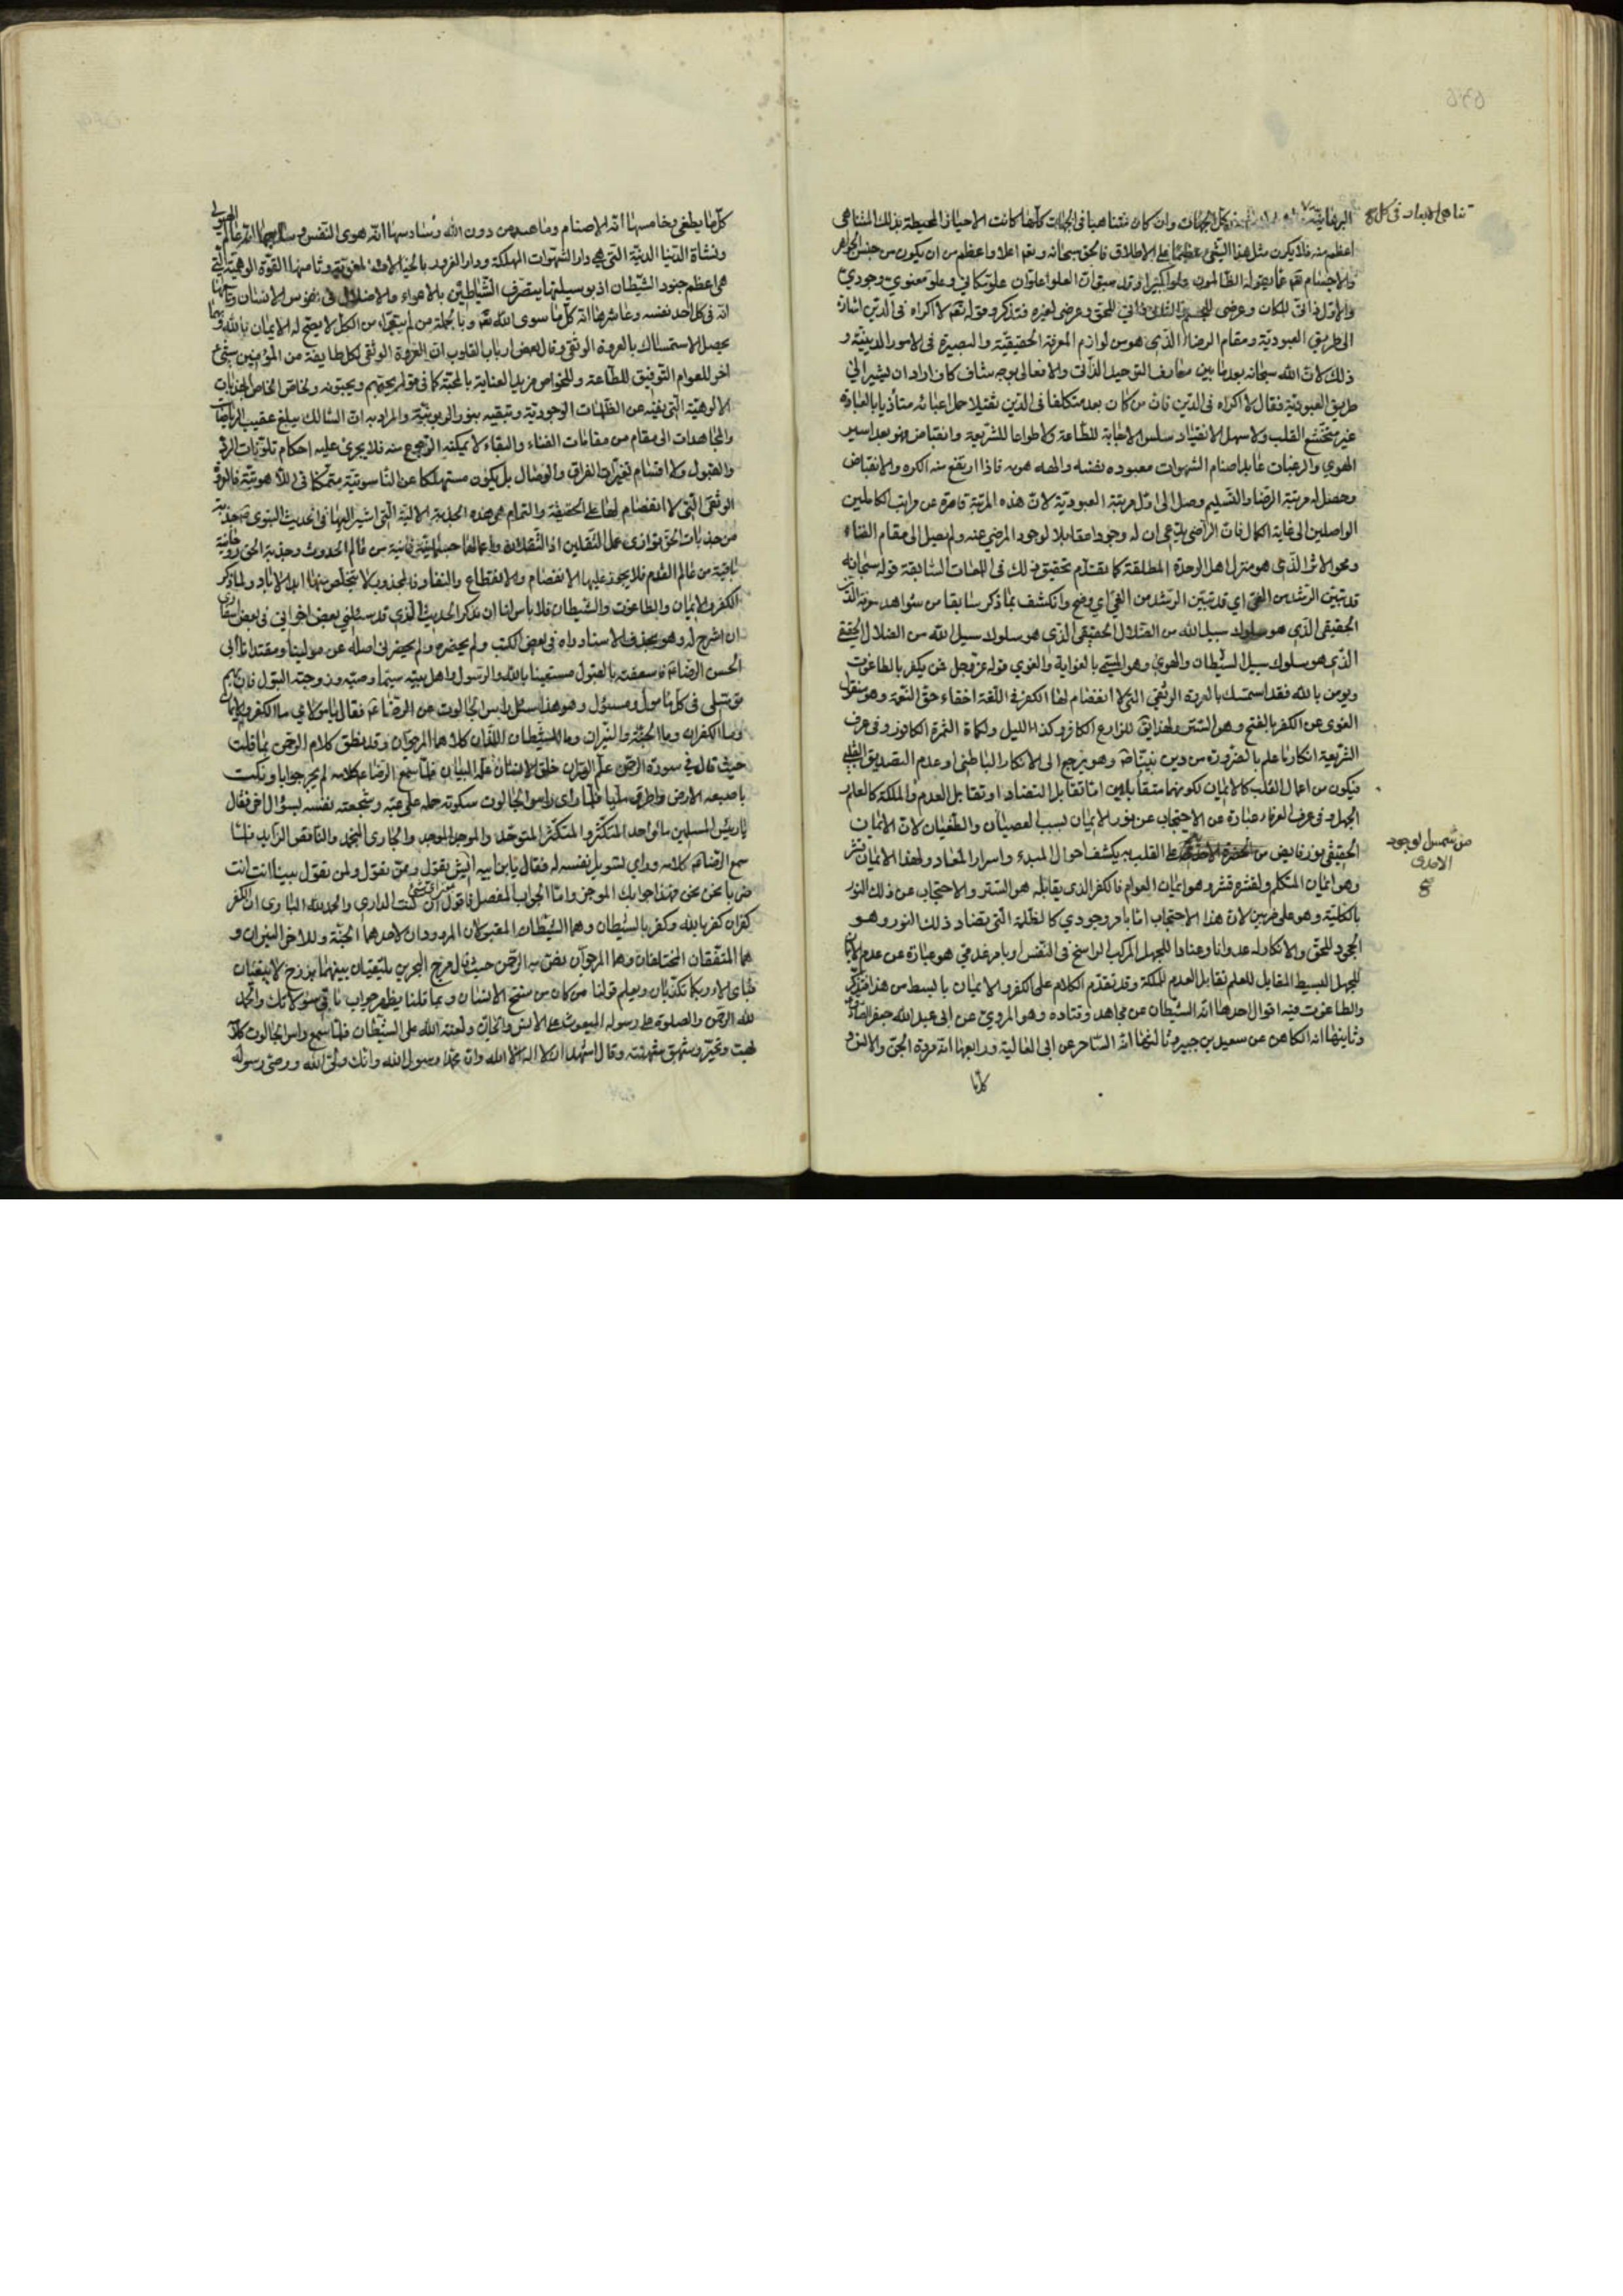 تناهى الابعاد فى كل
البرهانية كل الجهات وان كان متناهيا فى الجهات كلها كانت الاحياز المحيطة بذلك المتناهى
اعظم منه فلا يكون مثل هذا الشئ عظيما على الاطلاق فالحق سبحانه وتعم اعلا واعظم من ان يكون من جنس الجواهر
والاجسام تعم عما يقوله الظالمون علوا كبيرا وقد سبق ان العلو علوان علو مكانى وعلو معنوى وجودى
والاول ذاتى للمكان وعرضى للجسم والثانى ذاتى للحق وعرضى لغيره فتذكر وقوله تعم لا اكراه فى الدين اشارة
الى طريق العبودية ومقام الرضا الذى هو من لوازم المعرفة الحقيقية والبصيرة فى الامور الدينية و
ذلك لان الله سبحانه بعد ما بين معارف التوحيد الذات والافعالى بوجه شاف كاف اراد ان يشير الى
طريق العبودية فقال لا اكراه فى الدين فان من كان بعد متكلفا فى الدين ثقيلا حمل اعبائه متأذيا بالعبادة
غير متخشع القلب ولا سهل الانقياد سلس الاجابة للطاعة ولا طواعا للشريعة وانقيا فهو بعد اسير
الهوى والرغبات عابد اصنام الشهوات معبوده نفسه والهه هويه فاذا ارتفع منه الكره والانقباض
وحصل له مرتبة الرضا والتسليم وصل الى اول مرتبة العبودية لان هذه المرتبة قاصرة عن مراتب الكاملين
الواصلين الى غاية الكمال فان الراضى يدعى ان له وجودا مقابلا لوجود المرضى عنه ولم يصل الى مقام الفناء
ومحو الاثر الذى هو منزل اهل الوحدة المطلقة كما تقدم تحقيق ذلك فى اللمعات السابقة قوله سبحانه
قد تبين الرشد من الغى اى قد تبين الرشد من الغى اى وضح وانكشف بما ذكر سابقا من شواهد معرفة الذات
الحقيقى الذى هو سلوك سبيل الله من الضلال الحقيقى الذى هو سلوك سبيل الله من الضلال الحقيقى
الذى هو سلوك سبيل الشيطان والهوى وهو المسمى بالغواية والغوى قوله عز وجل فمن يكفر بالطاغوت
ويومن بالله فقد استمسك بالعروة الوثقى التى لا انفصام لها الكفر فى اللغة اخفاء حق النعمة وهو منقول
اللغوى عن الكفر بالفتح وهو الستر ولهذا يق للزارع الكافر وكذا الليل ولكمام الثمرة الكافور وفى عرف
الشريعة انكار ما علم بالضرورة من دين نبينا ص وهو يرجع الى الانكار الباطنى او عدم التصديق القلبى
فيكون من اعمال القلب كالايمان لكونهما متقابلين اما تقابل التضاد او تقابل العدم والملكة كالعلم
الجهل وفى عرف العرفاء عبارة عن الاحتجاب عن نور الايمان بسبب العصيان والطغيان لان الايمان
الحقيقى نور فايض من على القلب به يكشف احوال المبدء واسرار المعاد ولهذا الايمان قشر
من شمس الوجود
الاحدى
وهو ايمان المتكلم ولقشره قشر وهو ايمان العوام فالكفر الذى يقابله هو الستر والاحتجاب عن ذلك النور
بالكلية وهو على ضربين لان هذا الاحتجاب اما بامر وجودى كالظلمة التى تضاد ذلك النور وهو
الجحود للحق والانكار له عدوانا وعنادا للجهل المركب الراسخ فى النفس او بامر عدمى هو عبارة عن عدم الايمان
للجهل البسيط المقابل للعلم تقابل العدم للملكة وقد تقدم الكلام على الكفر والايمان بابسط من هذا فتذكر
والطاغوت فيه اقوال احدها انه الشيطان عن مجاهد وقتاده وهو المروى عن ابى عبد الله جعفر الصادق
وثانيها انه الكاهن عن سعيد بن جبير وثالثها انه الساحر عن ابى العالية ورابعها انه مردة الجن والانس و
كلما
كل ما يطغى وخامسها انه الاصنام وما عبد من دون الله وسادسها انه هوى النفس وسابعها انه عالم الهيولى
ونشأة الدنيا الدنية التى هى دار الشهوات المهلكة ودار الغرور وثامنها القوة الوهمية التى
هى اعظم جنود الشيطان اذ بوسيلتها يتصرف الشياطين بالاهواء والاضلال فى نفوس الانسان وتاسعها
انه فى كل احد نفسه وعاشرها انه كل ما سوى الله تعم وبالجملة من لم يتبرء من الكل لا يصح له الايمان بالله وبهما
يحصل الاستمساك بالعروة الوثقى وقال بعض ارباب القلوب ان العروة الوثقى لكل طايفة من المؤمنين شئ
اخر للعوام التوفيق للطاعة وللخواص مزيد العناية بالمحبة كما فى قوله يحبهم ويحبونه ولخاص الخاص الجذبات
الالوهية التى تفنيه عن الظلمات الوجودية وتبقيه بنور الربوبية والمراد به ان السالك سيبلغ عقيب الرياضات
والمجاهدات الى مقام من مقامات الفناء والبقاء لا يمكنه الرجوع منه فلا يجرى عليه احكام تلوينات الرد
والقبول ولا اقتسام تغيرات الفراق والوصال بل يكون مستهلكا عن الناسوتية متمكنا فى اللاهوتية فالعروة
الوثقى التى لا انفصام لها على الحقيقة والتمام هى هذه الجذبة الالهية التى اشير اليها فى الحديث النبوى ص جذبة
من جذبات الحق توازى عمل الثقلين اذ الثقلان واعمالهما فانية من عالم الحدوث وجذبة الحق
باقية من عالم القدم فلا يجوز عليها الانفصام والانقطاع والنفاد فالمجذوب لا يتخلص منها ابد الاباد ولما ذكر
الكفر والايمان والطاغوت والشيطان فلا باس لنا ان نذكر الحديث الذى قد سئلنى بعض اخوانى فى بعض اسفارى
ان اشرح له وهو بحذف الاسناد رواه فى بعض الكتب ولم يحضره ولم يحضرنى اصله عن مولينا ومقتدانا ابى
الحسن الرضا ع فاسعفته بالقبول مستعينا بالله والرسول واهل بيته سيما وصيه وزوجته البتول فان بهم
توسلى فى كل مامول ومسئول وهو هذا سئل راس الجالوت عن الرضا ع فقال يا مولاى ما الكفر والايمان
وما الكفران وما الجنة والنيران وما الشيطان اللذان كلاهما المرجوان وقد نطق كلام الرحمن بما قلت
حيث قال فى سورة الرحمن علم القران خلق الانسان علمه البيان فلما سمع الرضا ع كلامه لم يحر جوابا ونكت
باصبعه الارض واطرق مليا فلما راى راس الجالوت سكوته حمله على عيه وشجعته نفسه بسؤال اخر فقال
يا رئيس المسلمين ما الواحد المتكثر والمتكثر المتوحد والموجد الموجد والجارى المنجمد والناقص الزايد فلما
سمع الرضا ع كلامه وراى تسويل نفسه له فقال يابن ابيه ايش تقول وممن تقول ولمن تقول بينا انت انت
صرنا نحن نحن فهذا جوابك الموجز واما الجواب المفصل فاقول ان كنت الدارى والحمد لله البارى ان الكفر
كفران كفر بالله وكفر بالشيطان وهما الشيئان المقبولان المردودان لاحدهما الجنة وللاخر النيران و
هما المتفقان المختلفان وهما المرجوان نص به الرحمن حيث قال مرج البحرين يلتقيان بينهما برزخ لا يبغيان
فباى الاء ربكما تكذبان ويعلم قولنا من كان من سنخ الانسان وبما قلنا يظهر جواب باقى سؤالاتك والحمد
لله الرحمن والصلوة على رسوله المبعوث على الانس والجان ولعنة الله على الشيطان فلما سمع راس الجالوت كلامه
بهت وتحير وشهق شهقة وقال اشهد ان لا اله الا الله وان محمدا رسول الله وانك ولى الله ووصى رسوله